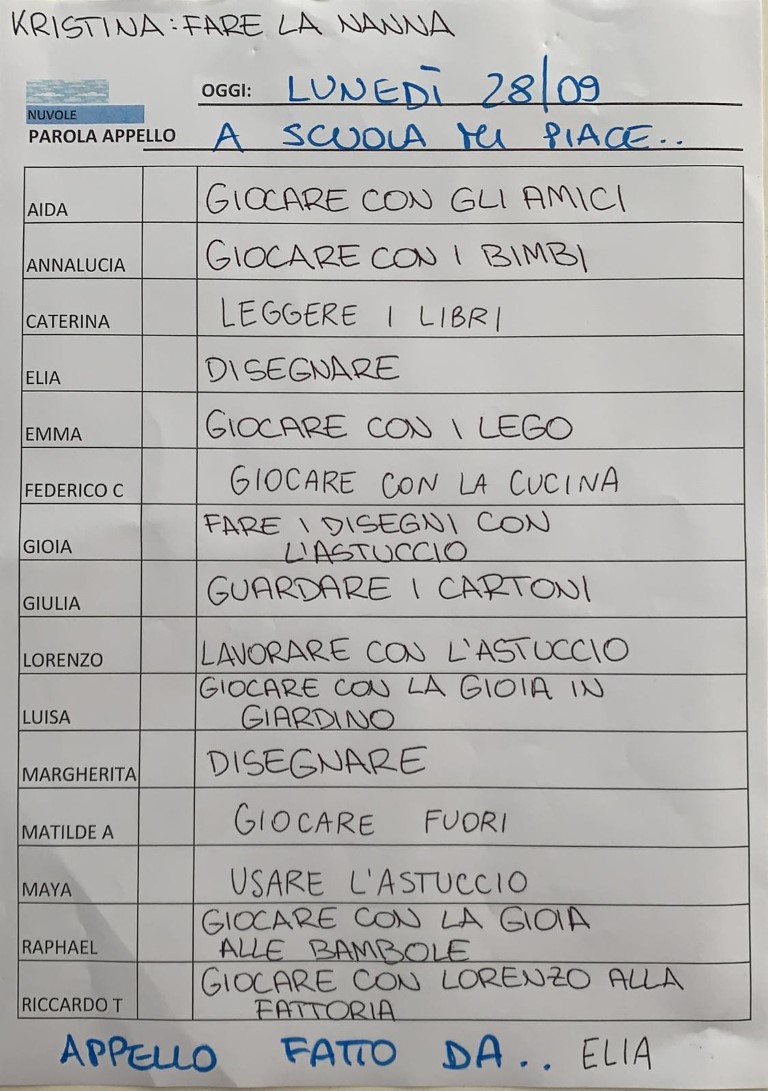 KRISTINA: FARE LA NANNA
OGGI: LUNEDÌ 28/09
NUVOLE
PAROLA APPELLO A SCUOLA MI PIACE..
AIDA GIOCARE CON GLI AMICI
ANNALUCIA GIOCARE CON I BIMBI
CATERINA LEGGERE I LIBRI
ELIA DISEGNARE
EMMA GIOCARE CON I LEGO
FEDERICO C GIOCARE CON LA CUCINA
GIOIA FARE I DISEGNI CON
L'ASTUCCIO
GIULIA GUARDARE I CARTONI
LORENZO LAVORARE CON L'ASTUCCIO
LUISA GIOCARE CON LA GIOIA IN
GIARDINO
MARGHERITA DISEGNARE
MATILDE A GIOCARE FUORI
MAYA USARE L'ASTUCCIO
RAPHAEL GIOCARE CON LA GIOIA
ALLE BAMBOLE
RICCARDO T GIOCARE CON LORENZO ALLA
FATTORIA
APPELLO FATTO DA.. ELIA